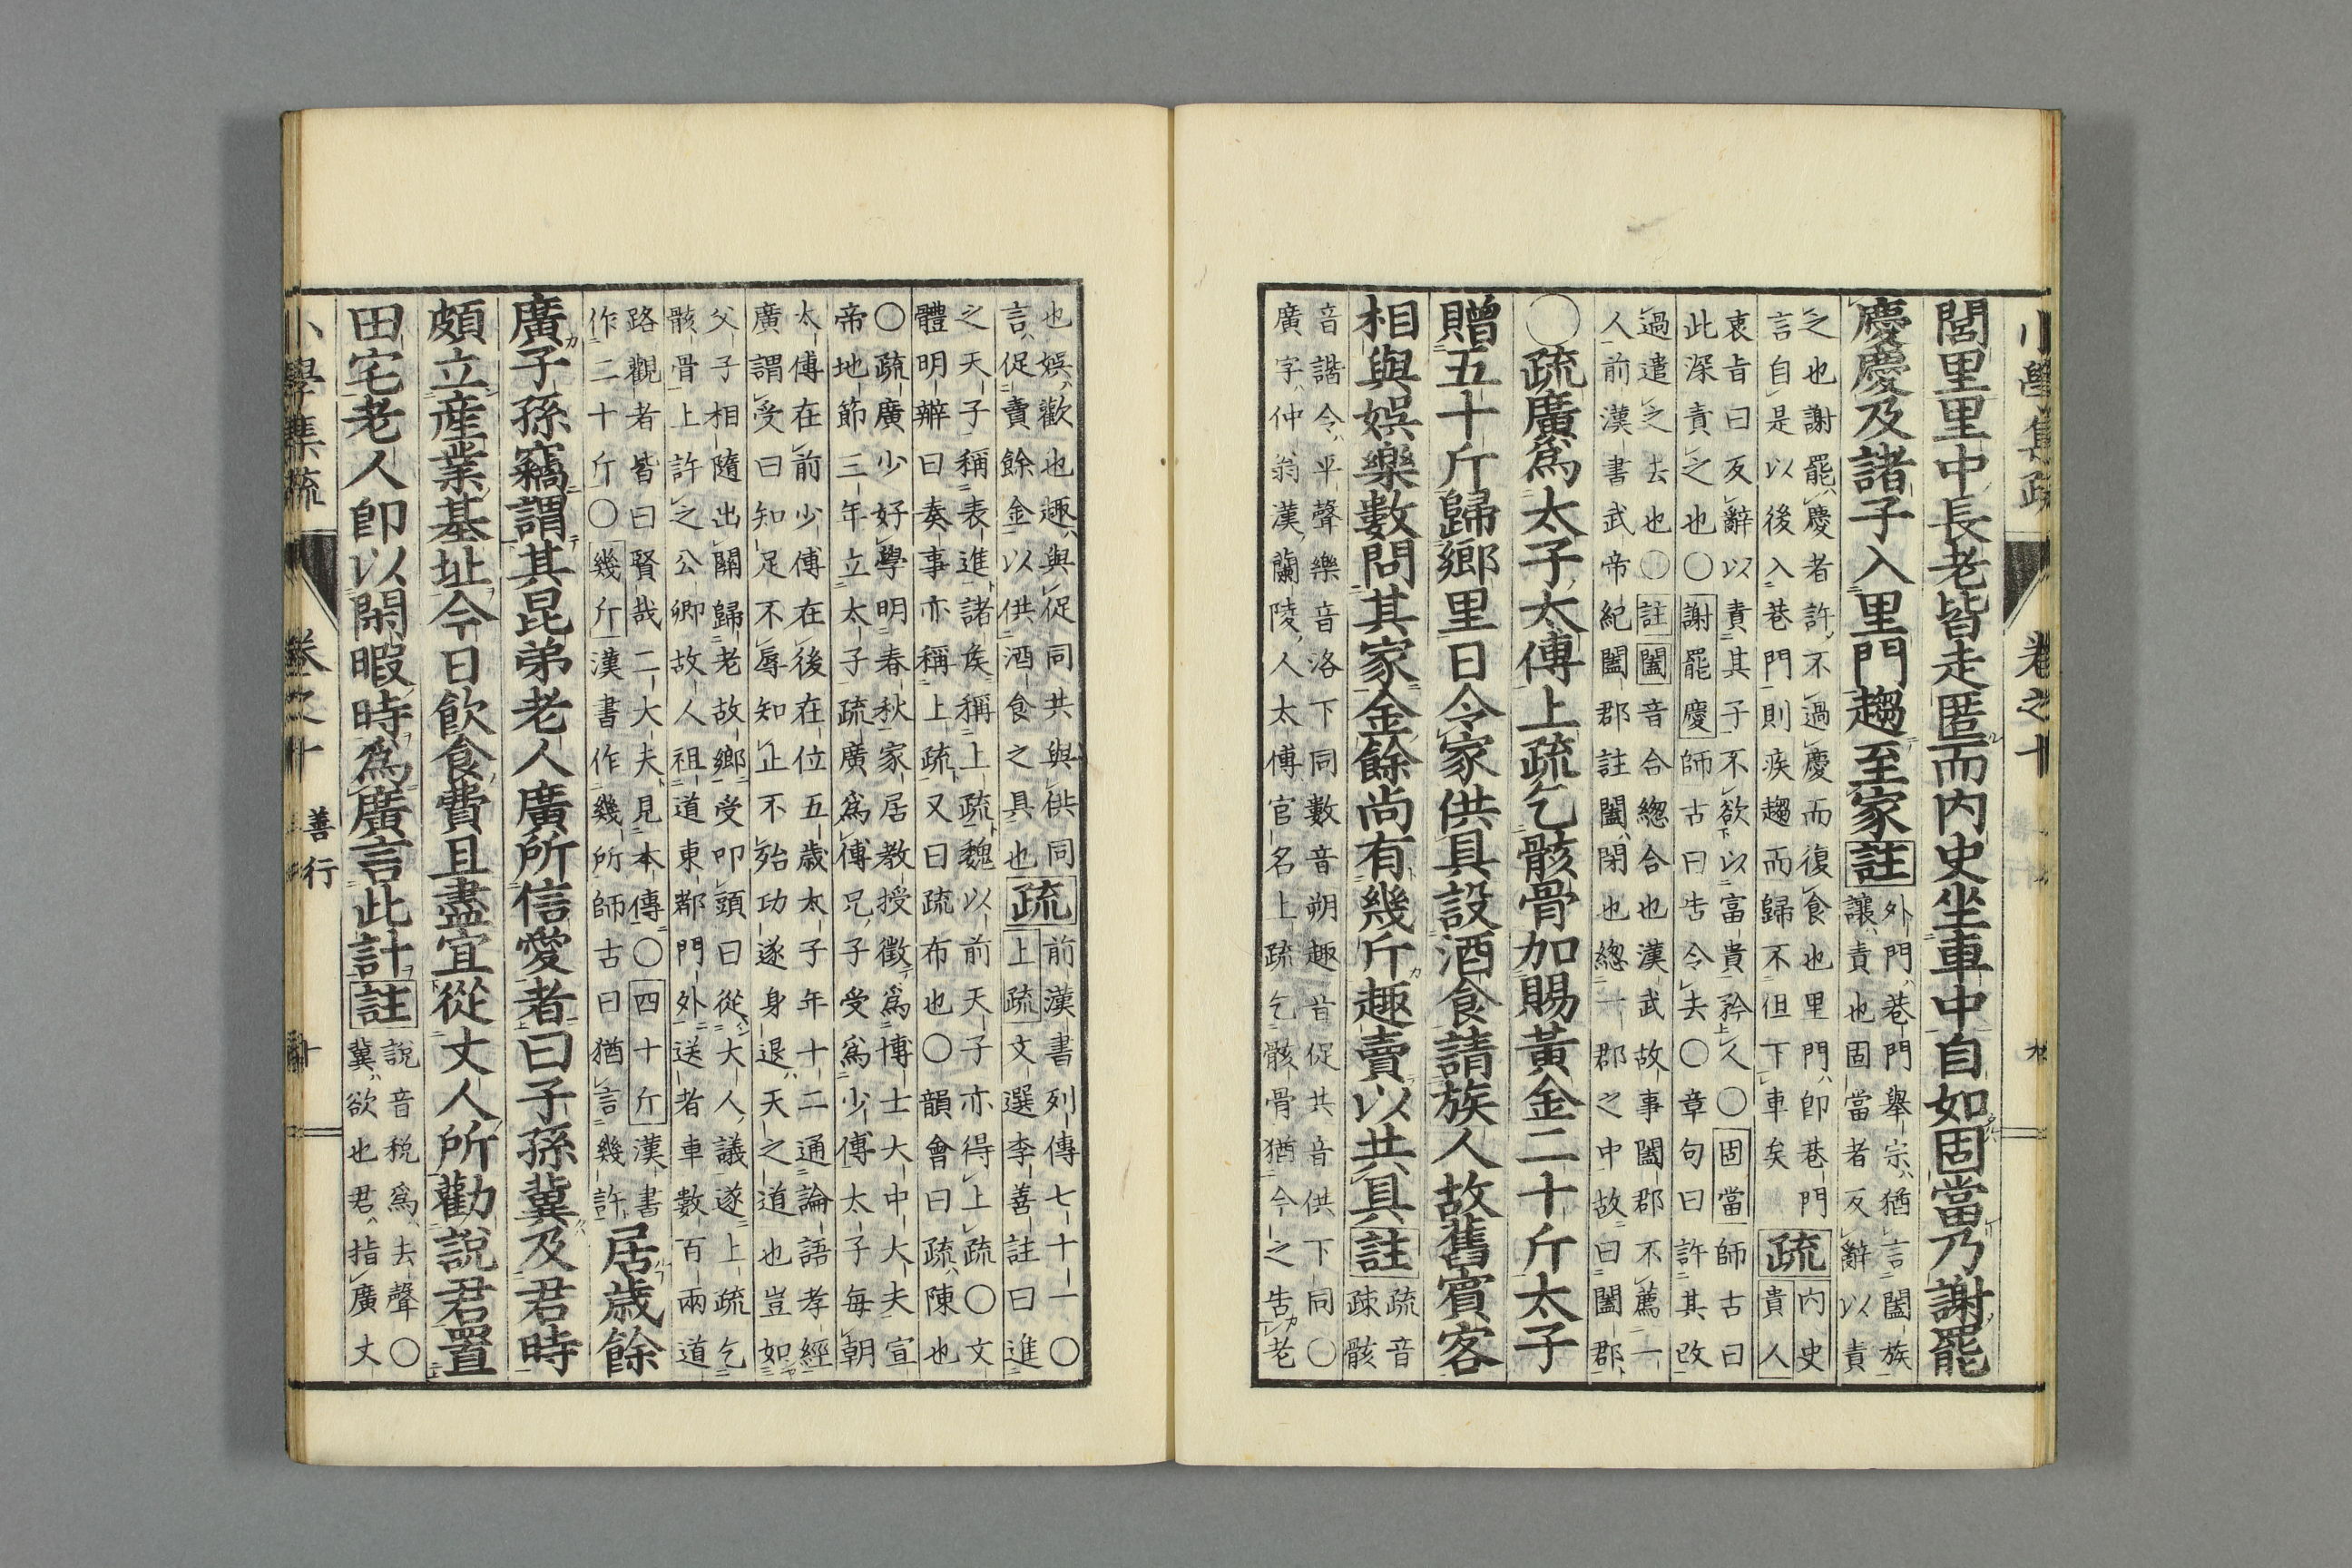 閭里里中長老皆走匿而内史坐車中自如固當乃謝罷
慶慶及諸子入里門趨至家註
外門巷門舉宗猶言闔族
讓責也固當者反辭以責
之也謝罷慶者許不過慶而復食也里門卽巷門
言自是以後入巷門則疾趨而歸不但下車矣
疏
内史
貴人
衷旨曰反辭以責其子不欲以富貴矜人○固當師古曰
此深責之也○謝罷慶師古曰告令去○章句曰許其改
過遣之去也○註闔音合緫合也漢武故事闔郡不薦一
人前漢書武帝紀闔郡註闔閉也緫一郡之中故曰闔郡
○疏廣爲太子太傅上疏乞骸骨加賜黃金二十斤太子
贈五十斤歸鄉里日令家供具設酒食請族人故舊賓客
相與娛樂數問其家金餘尚有幾斤趣賣以共具註
疏音
疎骸
音諧令平聲樂音洛下同數音朔趣音促共音供下同○
廣字仲翁漢蘭陵人太傅官名上疏乞骸骨猶今之告老
小學集疏
卷之十
九
也娛歡也趣與促同共與供同
言促賣餘金以供酒食之具也
疏
前漢書列傳七十一○
上疏文選李善註曰進
之天子稱表進諸侯稱上疏魏以前天子亦得上疏○文
體明辯曰奏事亦稱上疏又曰疏布也○韻會曰疏陳也
○疏廣少好學明春秋家居教授徵爲博士大中大夫宣
帝地節三年立太子疏廣爲傅兄子受爲少傅太子每朝
太傅在前少傅在後在位五歲太子年十二通論語孝經
廣謂受曰知足不辱知止不殆功遂身退天之道也豈如
父子相隨出關歸老故鄉受叩頭曰從大人議遂上疏乞
骸骨上許之公卿故人祖道東都門外送者車數百兩道
路觀者皆曰賢哉二大夫見本傳○四十斤漢書
作二十斤○幾斤漢書作幾所師古曰猶言幾許
居歲餘
廣子孫竊謂其昆弟老人廣所信愛者曰子孫冀及君時
頗立產業基址今日飮食費且盡宜從丈人所勸說君置
田宅老人卽以閑暇時爲廣言此計註
說音稅爲去聲○
冀欲也君指廣丈
小學集疏
卷之十
善行
十